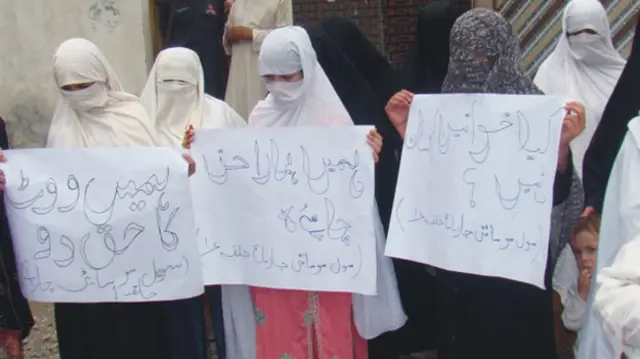 ہمیں ووٹ
کا حق دو
(سول سوسائٹی
حلقہ
ہمیں ہمارا حق
چاہئے
(سول سوسائٹی چارباغ حلقہ
کیا خواتین انسان
نہیں ؟
(سول سوسائٹی چارباغ حلقہ